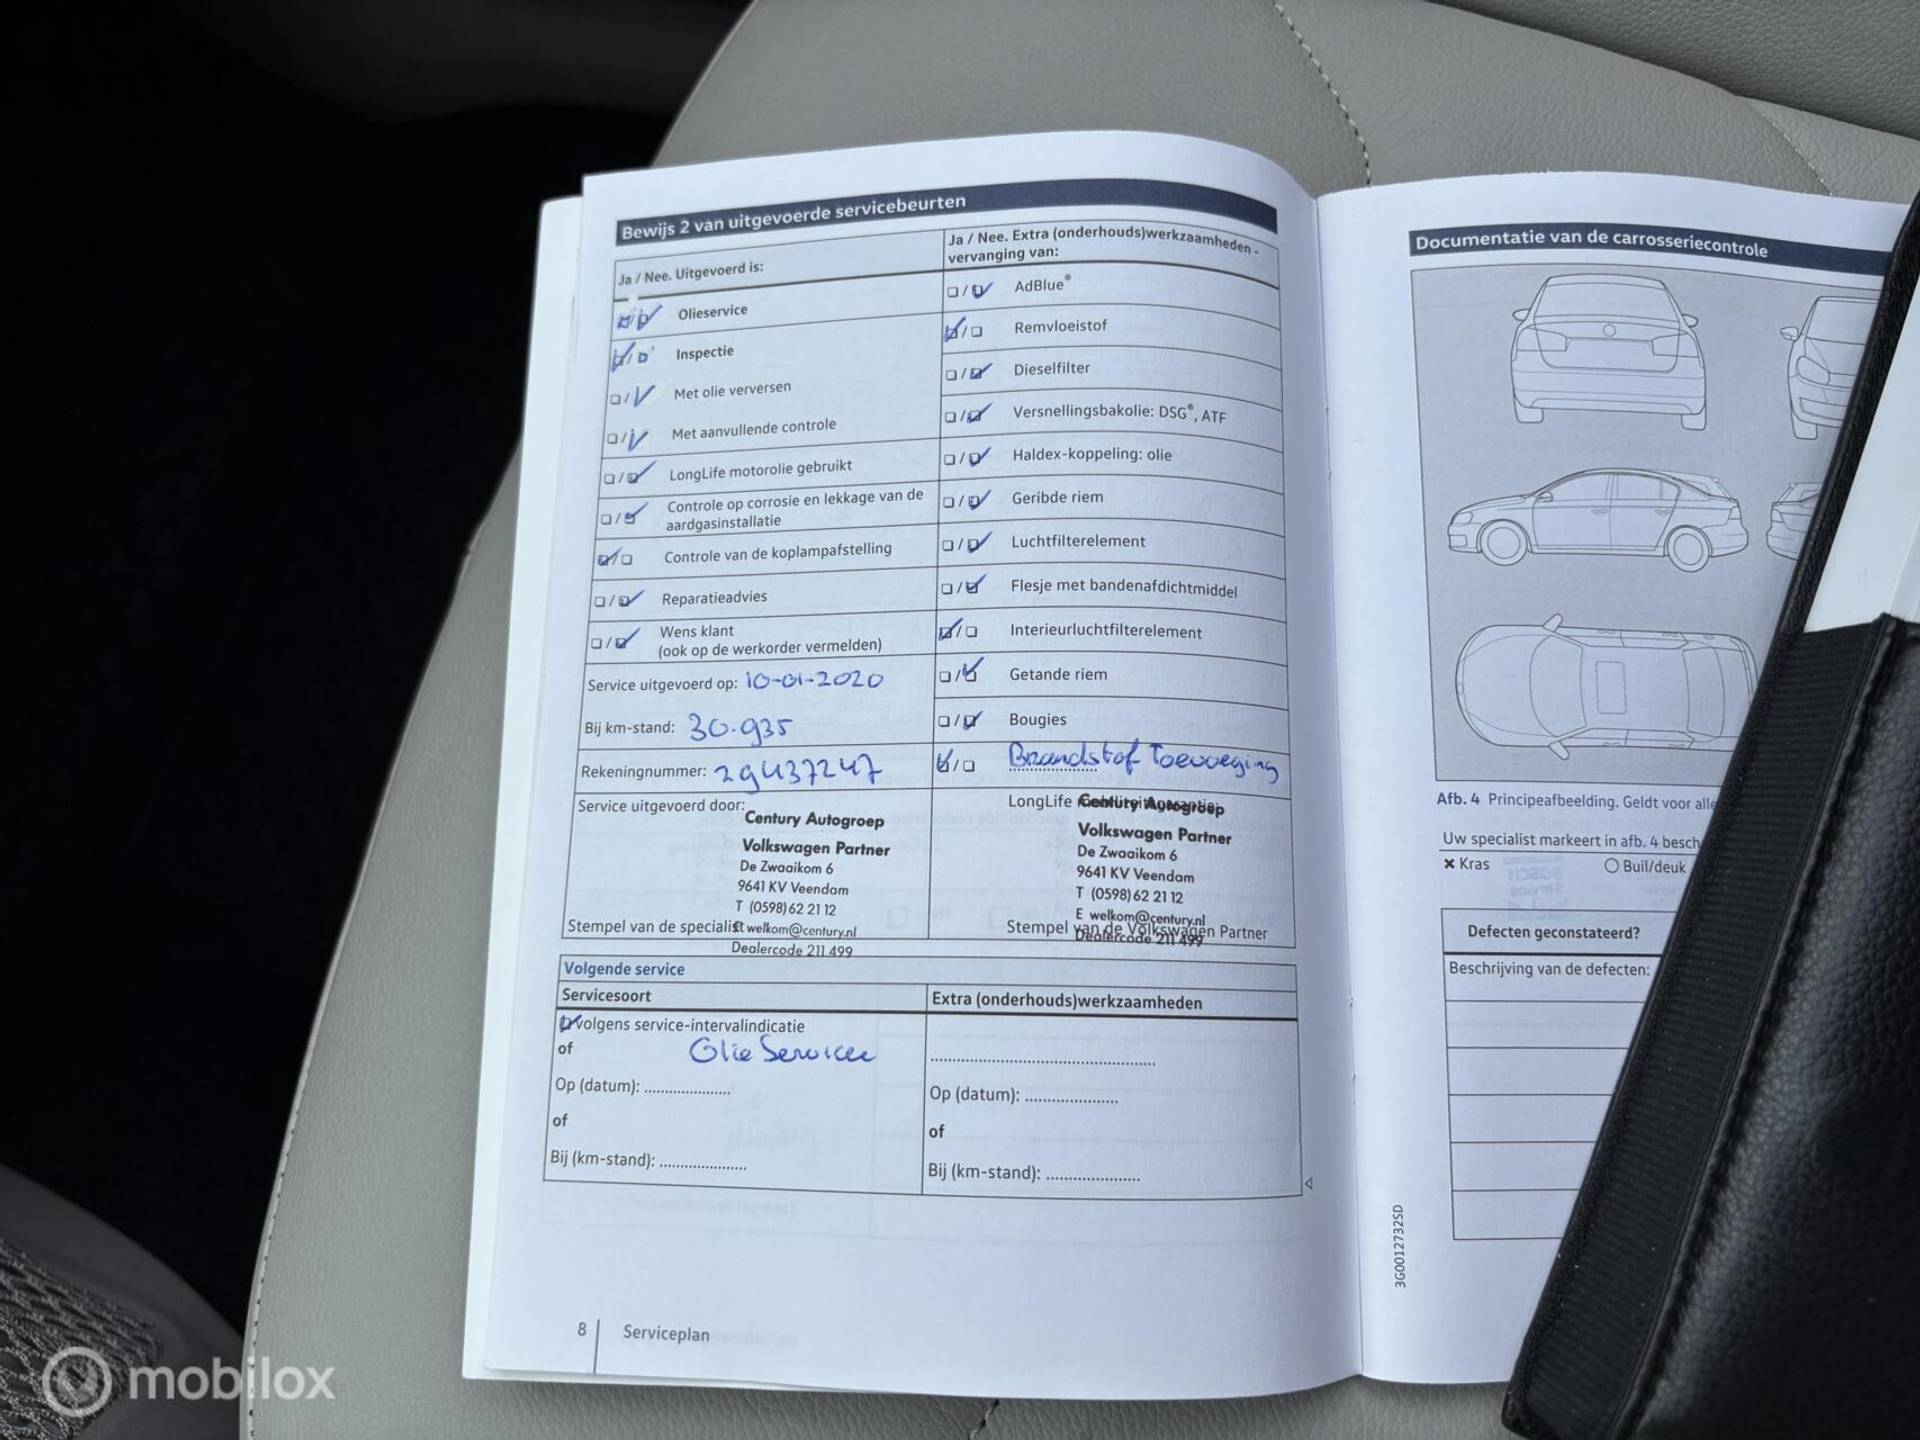 Bewijs 2 van uitgevoerde servicebeurten
Ja / Nee. Uitgevoerd is:
Olieservice
Inspectie
Met olie verversen
Met aanvullende controle
LongLife motorolie gebruikt
Controle op corrosie en lekkage van de
aardgasinstallatie
Controle van de koplampafstelling
Reparatieadvies
Wens klant
(ook op de werkorder vermelden)
Service uitgevoerd op: 10-01-2020
Bij km-stand: 30.935
Rekeningnummer: 29437247
Service uitgevoerd door:
Century Autogroep
Volkswagen Partner
De Zwaaikom 6
9641 KV Veendam
T (0598) 62 21 12
E welkom@century.nl
Stempel van de specialist
Dealercode 211 499
Ja / Nee. Extra (onderhouds)werkzaamheden -
vervanging van:
AdBlue®
Remvloeistof
Dieselfilter
Versnellingsbakolie: DSG®, ATF
Haldex-koppeling: olie
Geribde riem
Luchtfilterelement
Flesje met bandenafdichtmiddel
Interieurluchtfilterelement
Getande riem
Bougies
Brandstof Toevoeging
LongLife
Century Autogroep
Volkswagen Partner
De Zwaaikom 6
9641 KV Veendam
T (0598) 62 21 12
E welkom@century.nl
Stempel van de Volkswagen Partner
Dealercode 211 499
Volgende service
Servicesoort
volgens service-intervalindicatie
of
Olie Service
Op (datum): ....................
of
Bij (km-stand): ....................
Extra (onderhouds)werkzaamheden
Op (datum): ....................
of
Bij (km-stand): ....................
8
Serviceplan
Documentatie van de carrosseriecontrole
Afb. 4 Principeafbeelding. Geldt voor alle
Uw specialist markeert in afb. 4 besch
× Kras
Buil/deuk
Defecten geconstateerd?
Beschrijving van de defecten:
3G0012732SD
mobilox